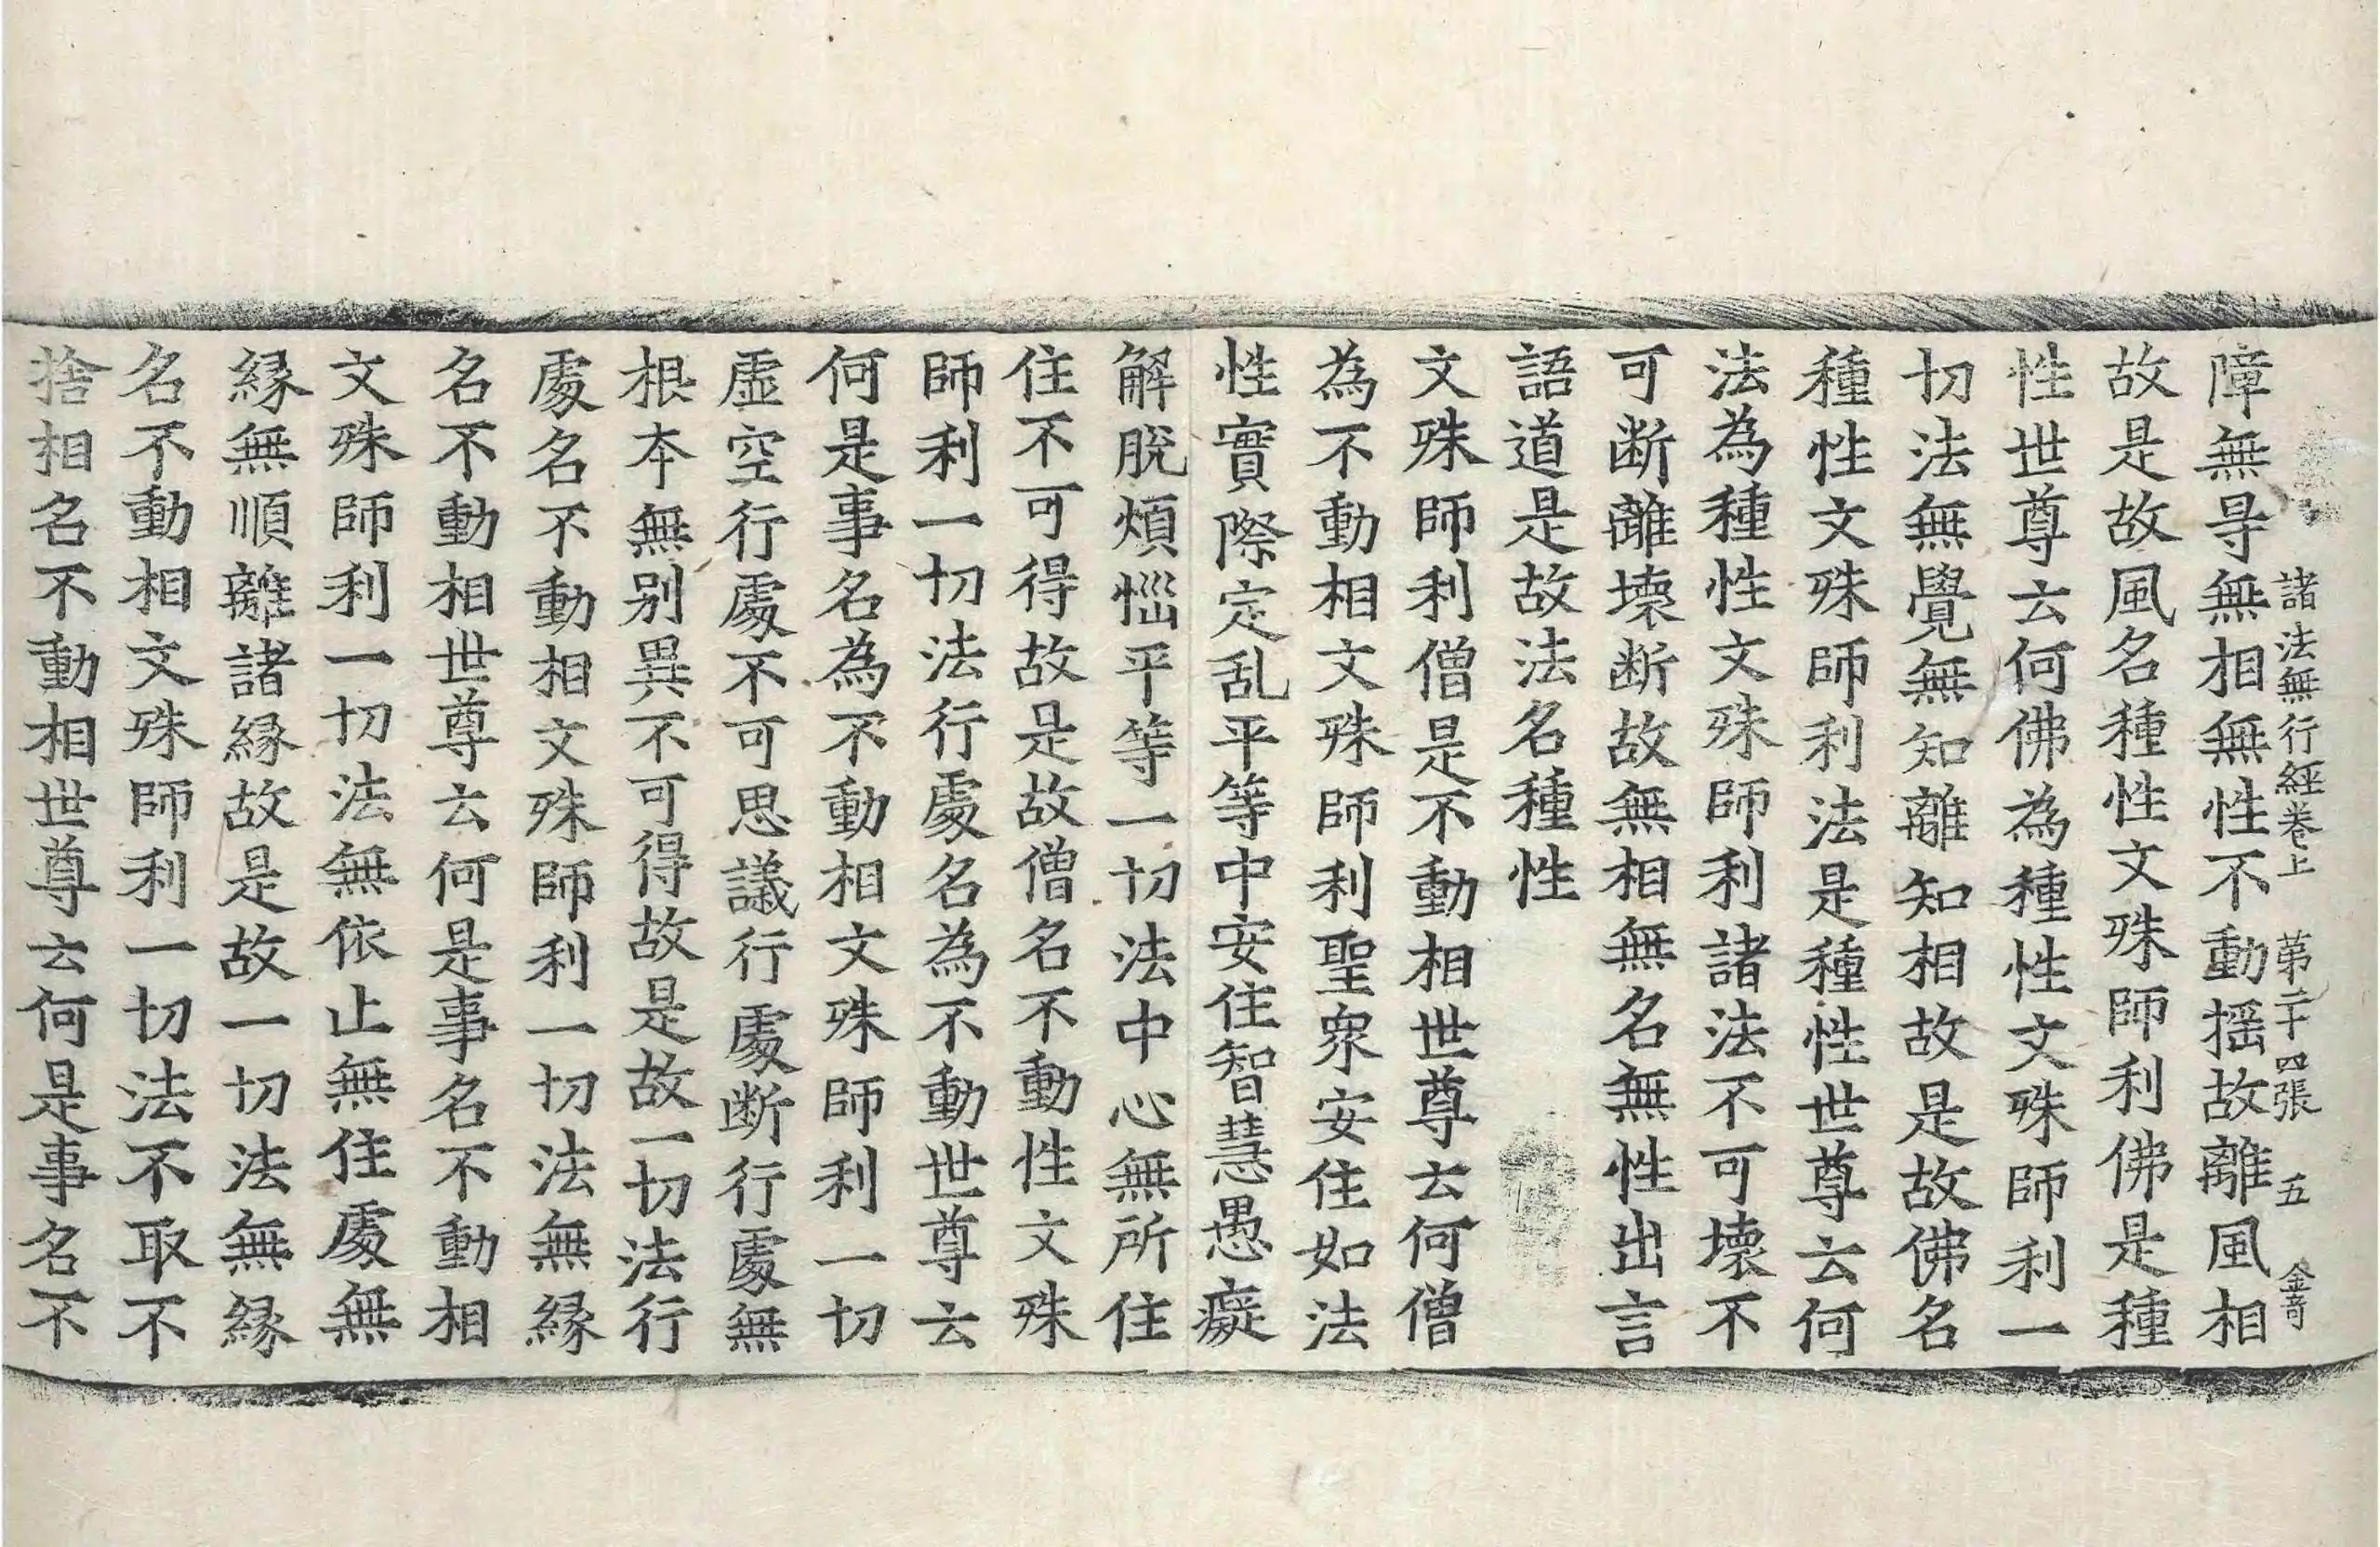 諸法無行經卷上　第二十四張　五　金奇
障無㝵無相無性不動揺故離風相
故是故風名種性文殊師利佛是種
性世尊云何佛為種性文殊師利一
切法無覺無知離知相故是故佛名
種性文殊師利法是種性世尊云何
法為種性文殊師利諸法不可壞不
可断離壞断故無相無名無性出言
語道是故法名種性
文殊師利僧是不動相世尊云何僧
為不動相文殊師利聖眾安住如法
性實際定乱平等中安住智慧愚癡
解脫煩惱平等一切法中心無所住
住不可得故是故僧名不動性文殊
師利一切法行處名為不動世尊云
何是事名為不動相文殊師利一切
虛空行處不可思議行處断行處無
根本無別異不可得故是故一切法行
處名不動相文殊師利一切法無縁
名不動相世尊云何是事名不動相
文殊師利一切法無依止無住處無
縁無順離諸縁故是故一切法無縁
名不動相文殊師利一切法不取不
捨相名不動相世尊云何是事名不